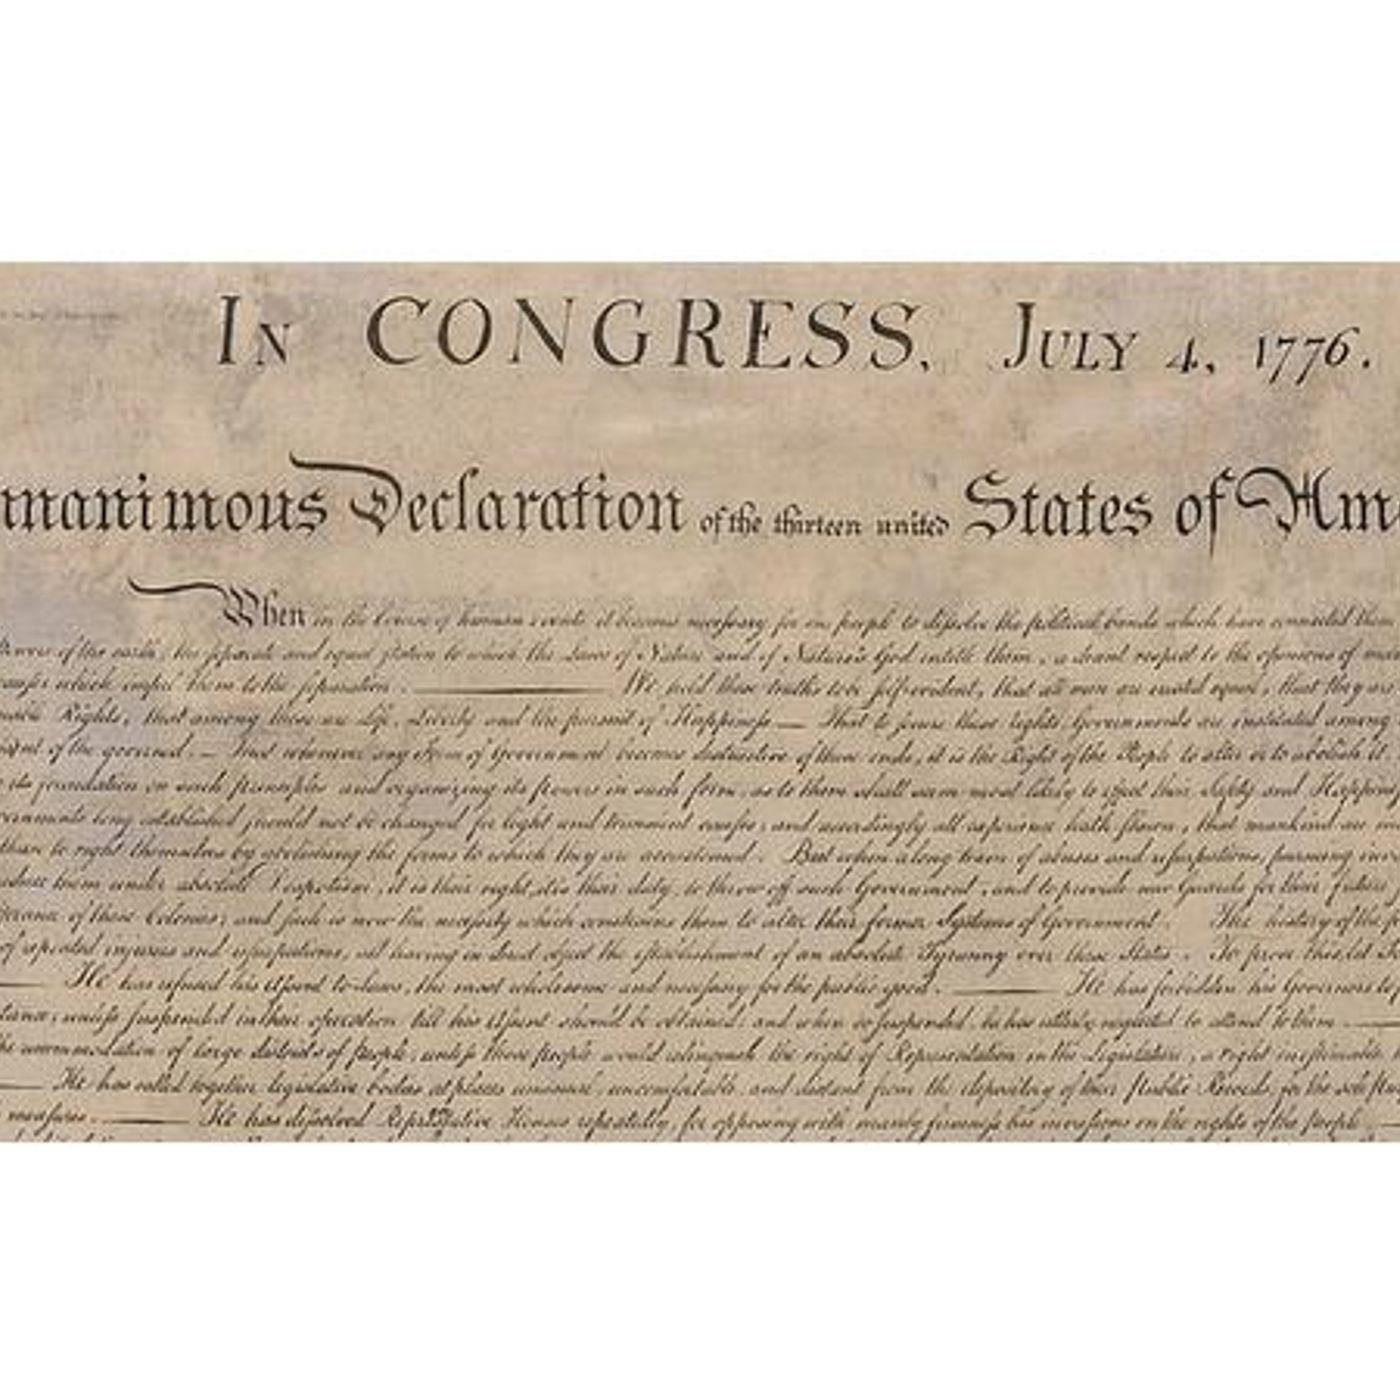 In CONGRESS, July 4, 1776.
nanimous Declaration of the thirteen united States of Ame
When in the Course of human events it becomes necessary for one people to dissolve the political bands which have connected them
Powers of the earth, the separate and equal station to which the Laws of Nature and of Nature's God entitle them, a decent respect to the opinions of man
causes which impel them to the separation. — We hold these truths to be self-evident, that all men are created equal, that they are
Rights, that among these are Life, Liberty and the pursuit of Happiness — That to secure these rights, Governments are instituted among
of the governed. — That whenever any Form of Government becomes destructive of these ends, it is the Right of the People to alter or to abolish it
its foundation on such principles and organizing its powers in such form, as to them shall seem most likely to effect their Safety and Happin
long established should not be changed for light and transient causes; and accordingly all experience hath shewn, that mankind are
than to right themselves by abolishing the forms to which they are accustomed. But when a long train of abuses and usurpations, pursuing
them under absolute Despotism, it is their right, it is their duty, to throw off such Government, and to provide new Guards for their future
of these Colonies; and such is now the necessity which constrains them to alter their former Systems of Government. The history of the
of repeated injuries and usurpations, all having in direct object the establishment of an absolute Tyranny over these States. To prove this, let
— He has refused his Assent to Laws, the most wholesome and necessary for the public good. — He has forbidden his Governors to
unless suspended in their operation till his Assent should be obtained; and when so suspended, he has utterly neglected to attend to them —
the accommodation of large districts of people, unless those people would relinquish the right of Representation in the Legislature, a right inestimable
— He has called together legislative bodies at places unusual, uncomfortable, and distant from the depository of their Public Records, for the sole
measures. — He has dissolved Representative Houses repeatedly, for opposing with manly firmness his invasions on the rights of the people —